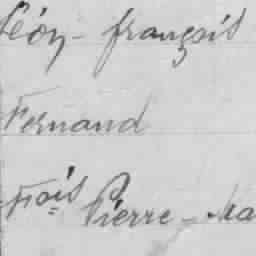 Léon - françois
Fernand
Fiois Pierre - Ma